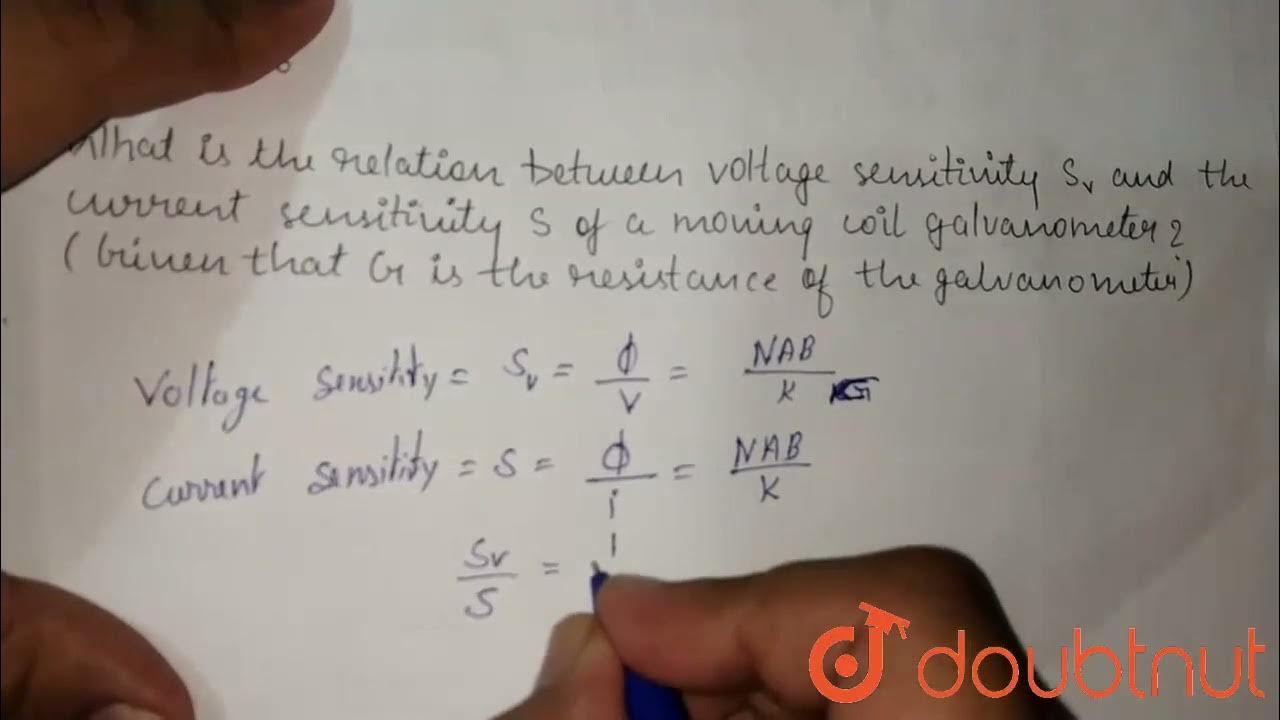 What is the relation between voltage sensitivity Sv and the
current sensitivity S of a moving coil galvanometer?
(Given that G is the resistance of the galvanometer)
Voltage sensitity = Sv = ϕ/V = NAB/K G
Current sensitity = S = ϕ/i = NAB/K
Sv/S = 1
doubtnut